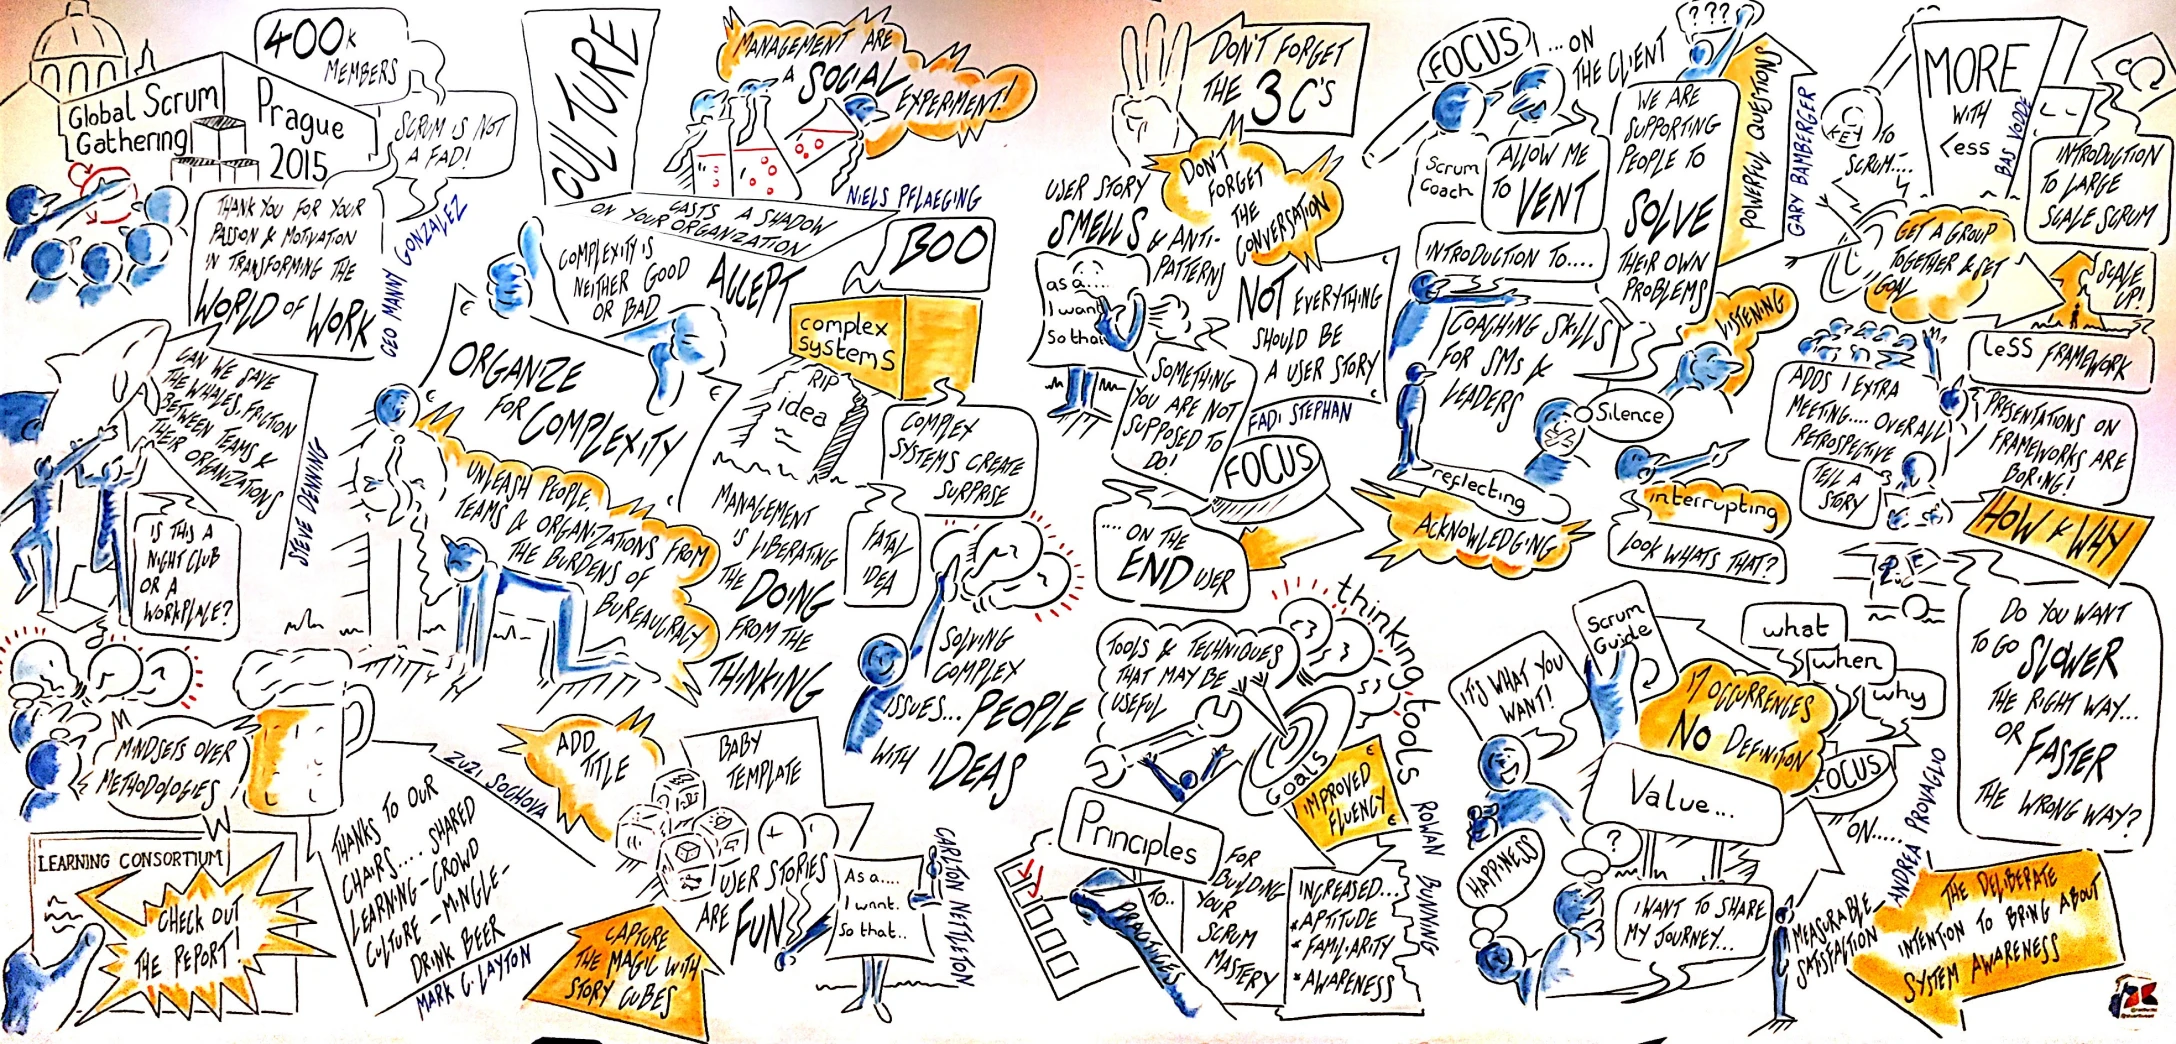 Global Scrum
Gathering
Prague
2015
400K
MEMBERS
SCRUM IS NOT
A FAD!
THANK YOU FOR YOUR
PASSION & MOTIVATION
IN TRANSFORMING THE
WORLD OF WORK
GEO MANN GONZALEZ
CAN WE SAVE
THE WHALES, FRICTION
BETWEEN TEAMS &
THEIR ORGANIZATIONS
STEVE DENNING
IS THIS A
NIGHT CLUB
OR A
WORKPLACE?
MINDSETS OVER
METHODOLOGIES
LEARNING CONSORTIUM
CHECK OUT
THE REPORT!
ZUZI SOCHOVA
THANKS TO OUR
CHAIRS.... SHARED
LEARNING - CROWD
CULTURE - MINGLE -
DRINK BEER
MARK C. LAYTON
CULTURE
CASTS A SHADOW
ON YOUR ORGANIZATION
MANAGEMENT ARE
A SOCIAL
EXPERIMENT!
NIELS PFLAEGING
COMPLEXITY IS
NEITHER GOOD
OR BAD
ACCEPT
BOO
complex
systems
ORGANIZE
FOR COMPLEXITY
RIP
idea
COMPLEX
SYSTEMS CREATE
SURPRISE
FATAL
IDEA
UNLEASH PEOPLE,
TEAMS & ORGANIZATIONS FROM
THE BURDENS OF
BUREAUCRACY
MANAGEMENT
IS LIBERATING
THE DOING
FROM THE
THINKING
SOLVING
COMPLEX
ISSUES... PEOPLE
WITH IDEAS
ADD
TITLE
BABY
TEMPLATE
USER STORIES
ARE FUN
As a....
I want.
So that..
CARLTON NETTLETON
CAPTURE
THE MAGIC WITH
STORY CUBES
DON'T FORGET
THE 3 C'S
DON'T
FORGET
THE
CONVERSATION
USER STORY
SMELLS & ANTI-
PATTERNS
as a....
I want
So that
NOT EVERYTHING
SHOULD BE
A USER STORY
FADI STEPHAN
SOMETHING
YOU ARE NOT
SUPPOSED TO
DO!
FOCUS
.... ON THE
END USER
TOOLS & TECHNIQUES
THAT MAY BE
USEFUL
thinking tools
GOALS
IMPROVED
FLUENCY
Principles
TO..
PRACTICES
FOR
BUILDING
YOUR
SCRUM
MASTERY
INCREASED...
* APTITUDE
* FAMILIARITY
* AWARENESS
ROWAN BUNNING
FOCUS
... ON
THE CLIENT
Scrum
Coach
ALLOW ME
TO VENT
???
WE ARE
SUPPORTING
PEOPLE TO
SOLVE
THEIR OWN
PROBLEMS
POWERFUL QUESTIONS
GARY BAMBERGER
INTRODUCTION TO....
COACHING SKILLS
FOR SMs &
LEADERS
LISTENING
Silence
reflecting
ACKNOWLEDGING
interrupting
LOOK WHATS THAT?
KEY TO
SCRUM....
MORE
WITH
Less
BAS VODDE
INTRODUCTION
TO LARGE
SCALE SCRUM
GET A GROUP
TOGETHER & SET
GOAL
SCALE
UP!
LeSS FRAMEWORK
ADDS 1 EXTRA
MEETING.... OVERALL
RETROSPECTIVE
PRESENTATIONS ON
FRAMEWORKS ARE
BORING!
TELL A
STORY
HOW & WHY
DO YOU WANT
TO GO SLOWER
THE RIGHT WAY...
OR FASTER
THE WRONG WAY?
Scrum
Guide
IT'S WHAT YOU
WANT!
17 OCCURRENCES
NO DEFINITION
what
when
why
FOCUS
ON.....
Value...
HAPPINESS
?
I WANT TO SHARE
MY JOURNEY...
MEASURABLE
SATISFACTION
ANDREA PROVAGLIO
THE DELIBERATE
INTENTION TO BRING ABOUT
SYSTEM AWARENESS